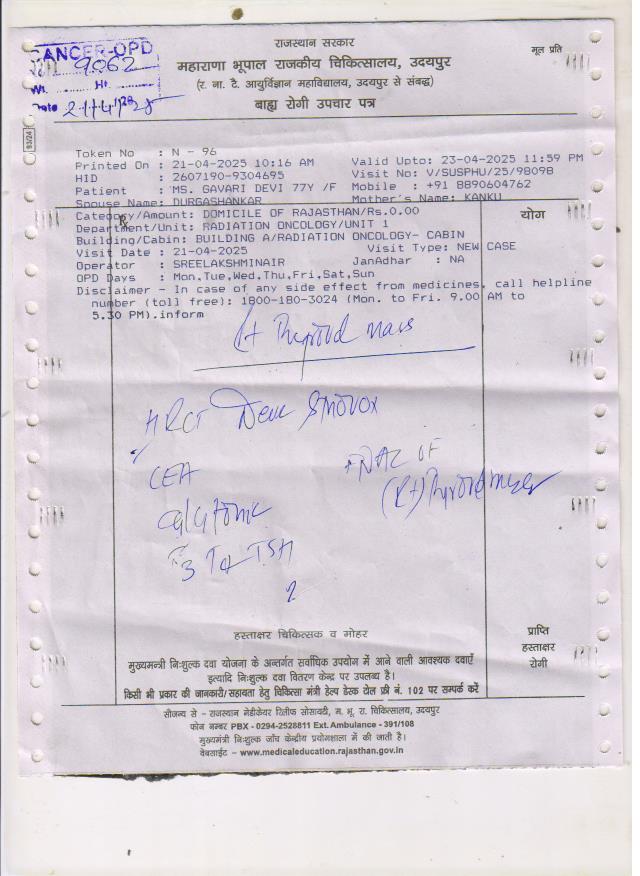 राजस्थान सरकार
मूल प्रति
महाराणा भूपाल राजकीय चिकित्सालय, उदयपुर
(र. ना. टै. आयुर्विज्ञान महाविद्यालय, उदयपुर से संबद्ध)
बाह्य रोगी उपचार पत्र
CANCER-OPD
9062
93/24
Token No : N - 96
Printed On : 21-04-2025 10:16 AM Valid Upto: 23-04-2025 11:59 PM
HID : 2607190-9304695 Visit No: V/SUSPHU/25/98098
Patient : MS. GAVARI DEVI 77Y /F Mobile : +91 8890604762
Spouse Name: DURGASHANKAR Mother's Name: KANKU
Category/Amount: DOMICILE OF RAJASTHAN/Rs.0.00
योग
Department/Unit: RADIATION ONCOLOGY/UNIT 1
Building/Cabin: BUILDING A/RADIATION ONCOLOGY- CABIN
Visit Date : 21-04-2025 Visit Type: NEW CASE
Operator : SREELAKSHMINAIR JanAdhar : NA
OPD Days : Mon,Tue,Wed,Thu,Fri,Sat,Sun
Disclaimer - In case of any side effect from medicines, call helpline
number (toll free): 1800-180-3024 (Mon. to Fri. 9.00 AM to
5.30 PM).inform
Rt Thyroid mass
HRCT
CEA
FNAC OF
(Rt) Thyroid
T3 T4 TSH
हस्ताक्षर चिकित्सक व मोहर
प्राप्ति
हस्ताक्षर
रोगी
मुख्यमन्त्री निःशुल्क दवा योजना के अन्तर्गत सर्वाधिक उपयोग में आने वाली आवश्यक दवाएँ
इत्यादि निःशुल्क दवा वितरण केन्द्र पर उपलब्ध है।
किसी भी प्रकार की जानकारी/सहायता हेतु चिकित्सा मंत्री हेल्प डेस्क टोल फ्री नं. 102 पर सम्पर्क करें
सौजन्य से - राजस्थान मेडीकेयर रिलीफ सोसायटी, म. भू. रा. चिकित्सालय, उदयपुर
फोन नम्बर PBX - 0294-2528811 Ext. Ambulance - 391/108
मुख्यमन्त्री निःशुल्क जाँच केन्द्रीय प्रयोगशाला में की जाती है।
वेबसाईट - www.medicaleducation.rajasthan.gov.in